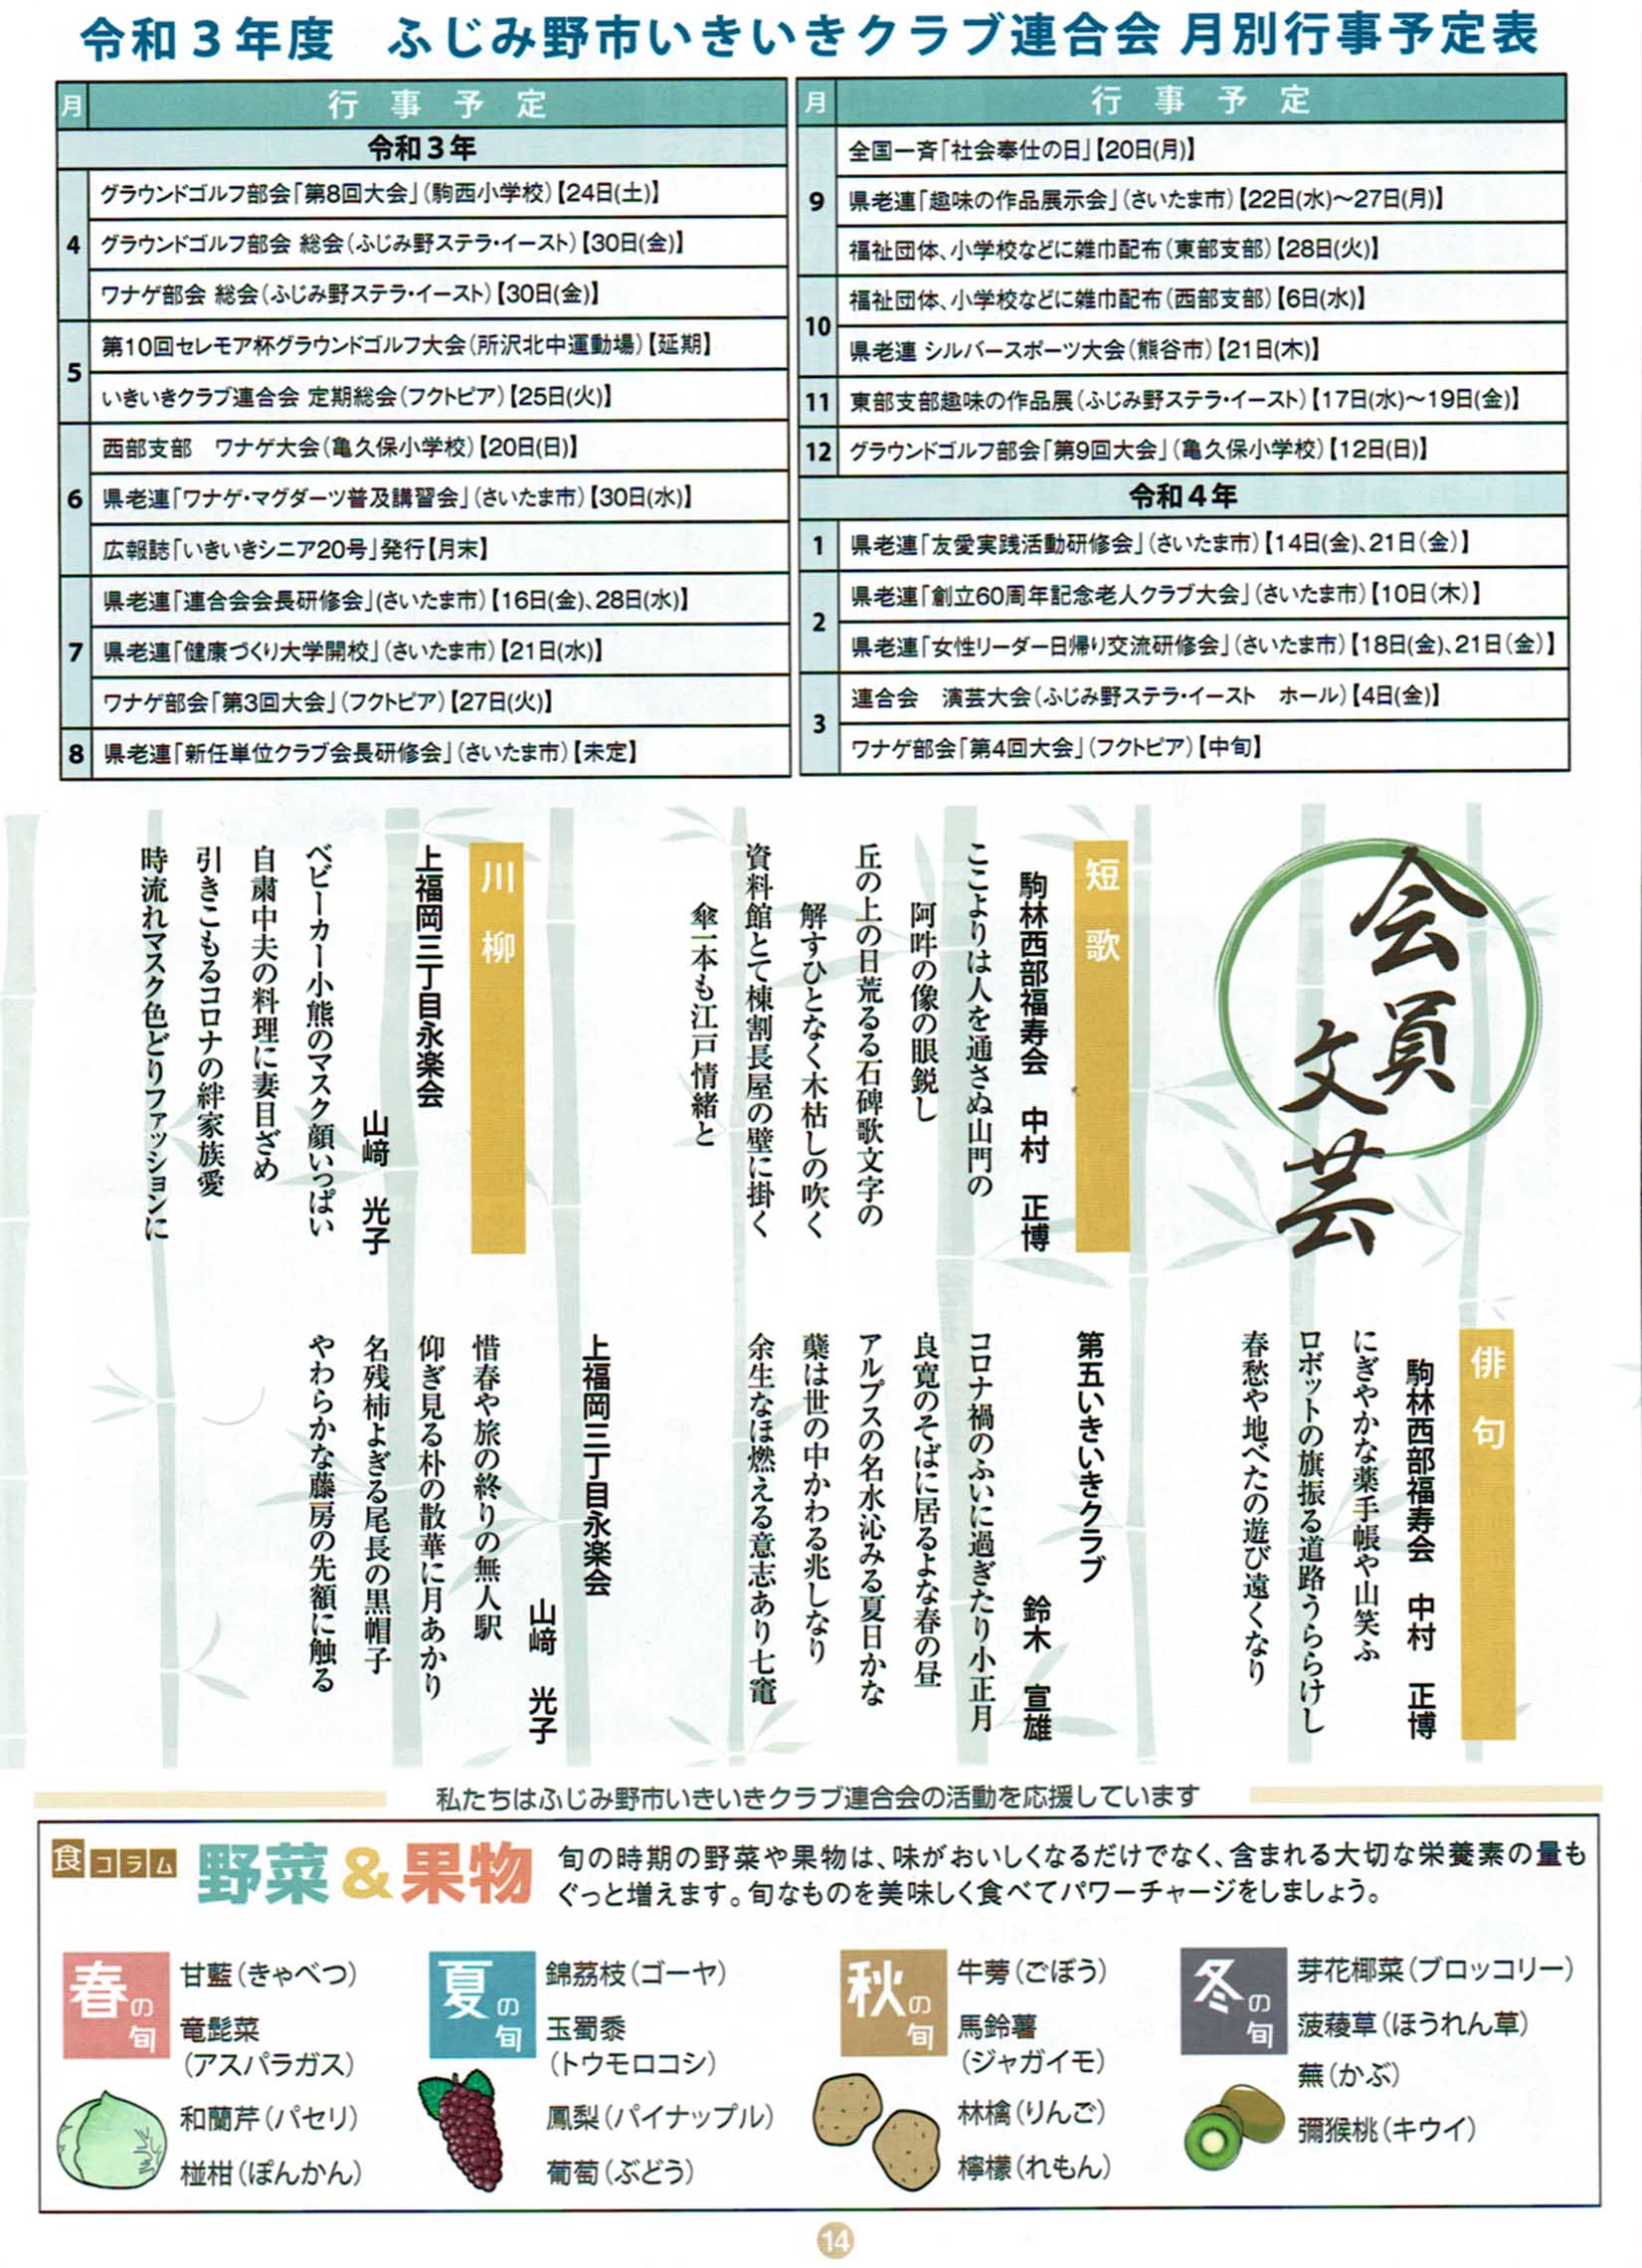 令和3年度　ふじみ野市いきいきクラブ連合会 月別行事予定表
月　行事予定
令和3年
4
グラウンドゴルフ部会「第8回大会」(駒西小学校)【24日(土)】
グラウンドゴルフ部会 総会(ふじみ野ステラ・イースト)【30日(金)】
ワナゲ部会 総会(ふじみ野ステラ・イースト)【30日(金)】
5
第10回セレモア杯グラウンドゴルフ大会(所沢北中運動場)【延期】
いきいきクラブ連合会 定期総会(フクトピア)【25日(火)】
6
西部支部　ワナゲ大会(亀久保小学校)【20日(日)】
県老連「ワナゲ・マグダーツ普及講習会」(さいたま市)【30日(水)】
広報誌「いきいきシニア20号」発行【月末】
7
県老連「連合会会長研修会」(さいたま市)【16日(金)、28日(水)】
県老連「健康づくり大学開校」(さいたま市)【21日(水)】
ワナゲ部会「第3回大会」(フクトピア)【27日(火)】
8
県老連「新任単位クラブ会長研修会」(さいたま市)【未定】
月　行事予定
9
全国一斉「社会奉仕の日」【20日(月)】
県老連「趣味の作品展示会」(さいたま市)【22日(水)～27日(月)】
福祉団体、小学校などに雑巾配布(東部支部)【28日(火)】
10
福祉団体、小学校などに雑巾配布(西部支部)【6日(水)】
県老連 シルバースポーツ大会(熊谷市)【21日(木)】
11
東部支部趣味の作品展(ふじみ野ステラ・イースト)【17日(水)～19日(金)】
12
グラウンドゴルフ部会「第9回大会」(亀久保小学校)【12日(日)】
令和4年
1
県老連「友愛実践活動研修会」(さいたま市)【14日(金)、21日(金)】
2
県老連「創立60周年記念老人クラブ大会」(さいたま市)【10日(木)】
県老連「女性リーダー日帰り交流研修会」(さいたま市)【18日(金)、21日(金)】
3
連合会　演芸大会(ふじみ野ステラ・イースト　ホール)【4日(金)】
ワナゲ部会「第4回大会」(フクトピア)【中旬】
会員文芸
短歌
駒林西部福寿会　中村　正博
ここよりは人を通さぬ山門の
阿吽の像の眼鋭し
丘の上の日荒るる石碑歌文字の
解すひとなく木枯しの吹く
資料館とて棟割長屋の壁に掛く
傘一本も江戸情緒と
川柳
上福岡三丁目永楽会
山﨑　光子
ベビーカー小熊のマスク顔いっぱい
自粛中夫の料理に妻目ざめ
引きこもるコロナの絆家族愛
時流れマスク色どりファッションに
俳句
駒林西部福寿会　中村　正博
にぎやかな薬手帳や山笑ふ
ロボットの旗振る道路うららけし
春愁や地べたの遊び遠くなり
第五いきいきクラブ
鈴木　宣雄
コロナ禍のふいに過ぎたり小正月
良寛のそばに居るよな春の昼
アルプスの名水沁みる夏日かな
蘖は世の中かわる兆しなり
余生なほ燃える意志あり七竈
上福岡三丁目永楽会
山﨑　光子
惜春や旅の終りの無人駅
仰ぎ見る朴の散華に月あかり
名残柿よぎる尾長の黒帽子
やわらかな藤房の先額に触る
私たちはふじみ野市いきいきクラブ連合会の活動を応援しています
食コラム
野菜&果物
旬の時期の野菜や果物は、味がおいしくなるだけでなく、含まれる大切な栄養素の量も
ぐっと増えます。旬なものを美味しく食べてパワーチャージをしましょう。
春の旬
甘藍(きゃべつ)
竜髭菜
(アスパラガス)
和蘭芹(パセリ)
椪柑(ぽんかん)
夏の旬
錦茘枝(ゴーヤ)
玉蜀黍
(トウモロコシ)
鳳梨(パイナップル)
葡萄(ぶどう)
秋の旬
牛蒡(ごぼう)
馬鈴薯
(ジャガイモ)
林檎(りんご)
檸檬(れもん)
冬の旬
芽花椰菜(ブロッコリー)
菠薐草(ほうれん草)
蕪(かぶ)
彌猴桃(キウイ)
14